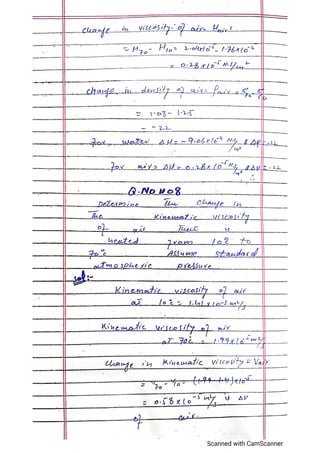 change in viscosity of air = Mair
= M70 - M10 = 2.04x10⁻⁵ - 1.76x10⁻⁵
= 0.28 x10⁻⁵ N.S/m²
change in density of air ρair = ρ70 - ρ10
= 1.03 - 1.25
= -.22
For water ΔM = -9.06x10⁻⁴ N.S/m²
For air = ΔM = 0.28x10⁻⁵ N.S/m² & Δρ = -.22
Q.NO # 08
Determine The change in
The Kinematic viscosity
of air That is
heated from 10°c to
70°c Assume standard
atmospheric pressure.
Sol:-
Kinematic viscosity of air
at 10°c = 1.41x10⁻⁵ m²/s
Kinematic viscosity of air
at 70c = 1.99x10⁻⁵ m²/s
change in Kinematic viscosity = Vair
= V70 - V10 = (1.99-1.41)x10⁻⁵
= 0.58x10⁻⁵ m²/s is ΔV
of air.
Scanned with CamScanner